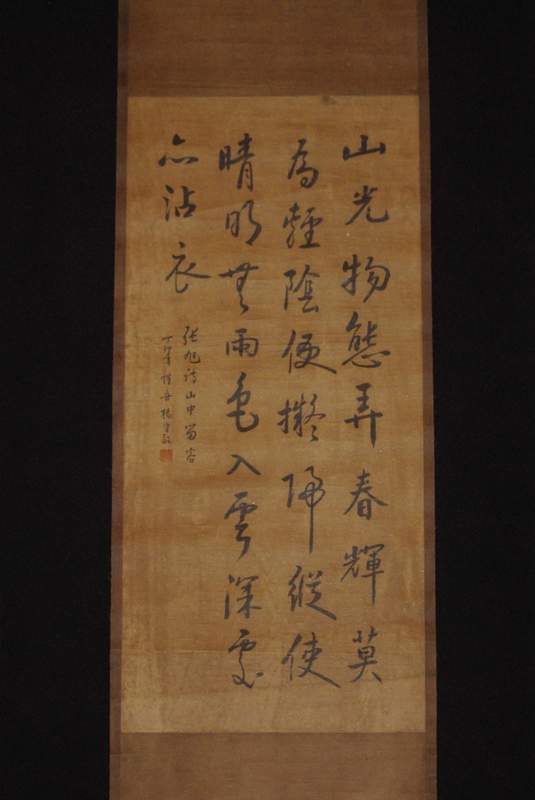 山光物態弄春輝莫
為輕陰便擬歸縱使
晴明無雨色入雲深處
亦沾衣
張旭詩山中留客
惺吾楊守敬